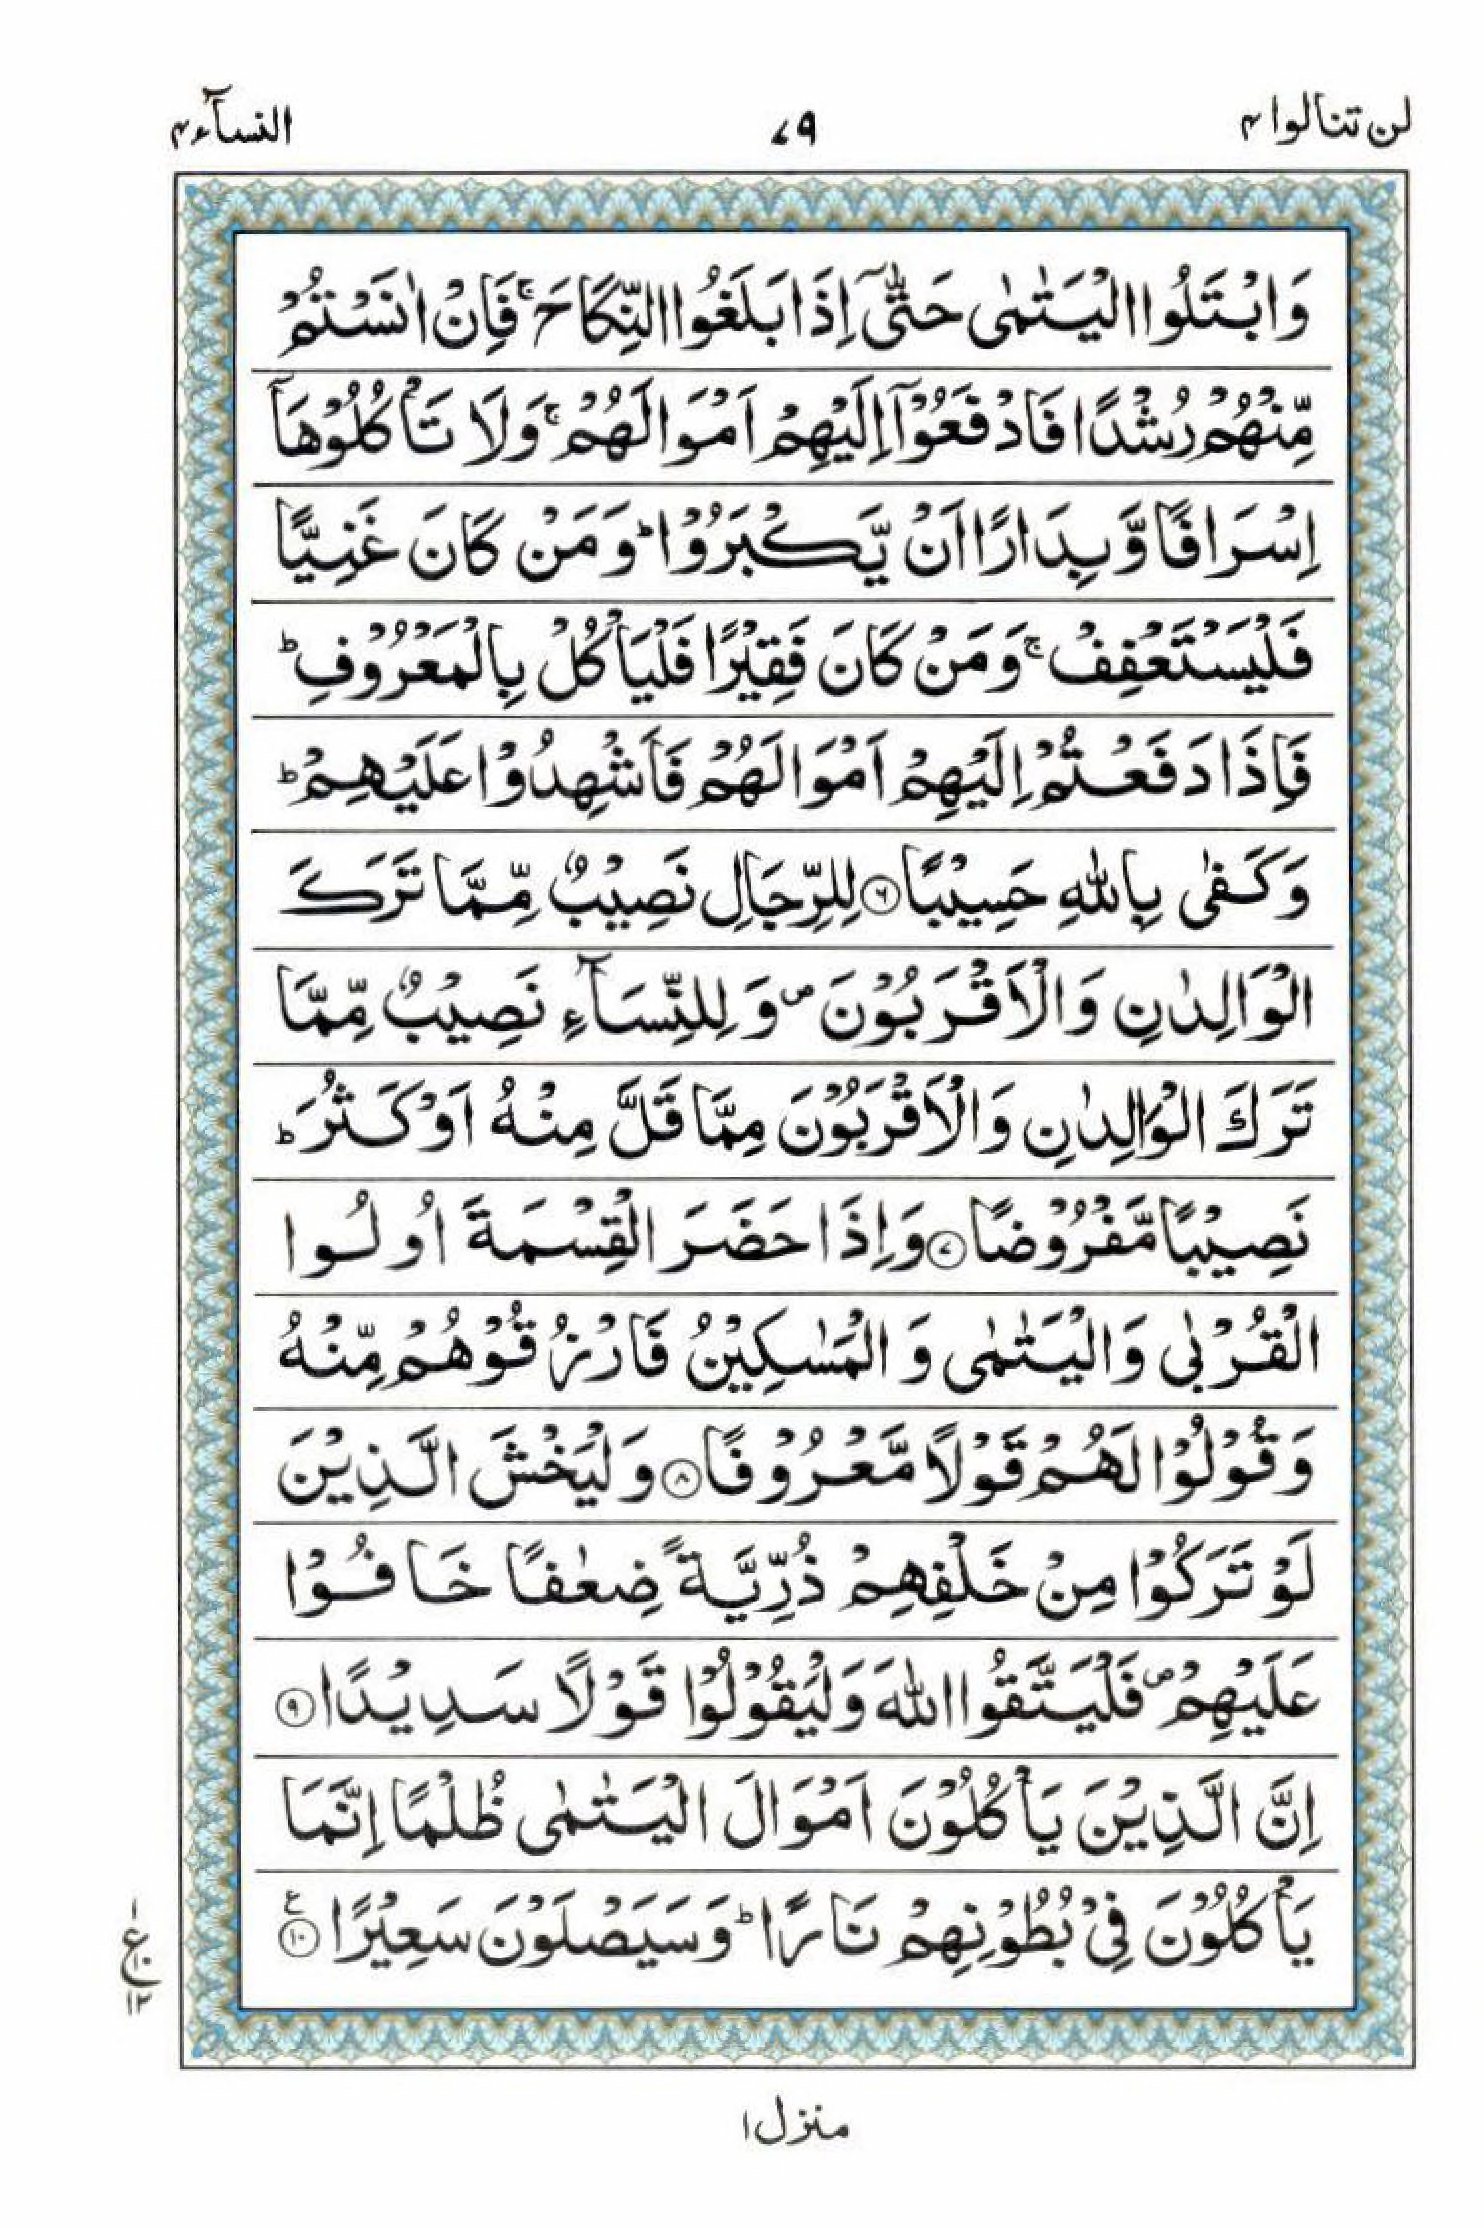 لن تنالوا ۴
۷۹
النسآء ۴
وَابْتَلُوا الْيَتٰمٰى حَتّٰۤى اِذَا بَلَغُوا النِّكَاحَ ۚ فَاِنْ اٰنَسْتُمْ
مِّنْهُمْ رُشْدًا فَادْفَعُوْۤا اِلَيْهِمْ اَمْوَالَهُمْ ۚ وَلَا تَاْكُلُوْهَاۤ
اِسْرَافًا وَّبِدَارًا اَنْ يَّكْبَرُوْا ؕ وَمَنْ كَانَ غَنِيًّا
فَلْيَسْتَعْفِفْ ۚ وَمَنْ كَانَ فَقِيْرًا فَلْيَاْكُلْ بِالْمَعْرُوْفِ ؕ
فَاِذَا دَفَعْتُمْ اِلَيْهِمْ اَمْوَالَهُمْ فَاَشْهِدُوْا عَلَيْهِمْ ؕ
وَكَفٰى بِاللّٰهِ حَسِيْبًا ۝۶ لِلرِّجَالِ نَصِيْبٌ مِّمَّا تَرَكَ
الْوَالِدٰنِ وَالْاَقْرَبُوْنَ ۪ وَلِلنِّسَآءِ نَصِيْبٌ مِّمَّا
تَرَكَ الْوَالِدٰنِ وَالْاَقْرَبُوْنَ مِمَّا قَلَّ مِنْهُ اَوْ كَثُرَ ؕ
نَصِيْبًا مَّفْرُوْضًا ۝۷ وَاِذَا حَضَرَ الْقِسْمَةَ اُولُوا
الْقُرْبٰى وَالْيَتٰمٰى وَالْمَسٰكِيْنُ فَارْزُقُوْهُمْ مِّنْهُ
وَقُوْلُوْا لَهُمْ قَوْلًا مَّعْرُوْفًا ۝۸ وَلْيَخْشَ الَّذِيْنَ
لَوْ تَرَكُوْا مِنْ خَلْفِهِمْ ذُرِّيَّةً ضِعٰفًا خَافُوْا
عَلَيْهِمْ ۪ فَلْيَتَّقُوا اللّٰهَ وَلْيَقُوْلُوْا قَوْلًا سَدِيْدًا ۝۹
اِنَّ الَّذِيْنَ يَاْكُلُوْنَ اَمْوَالَ الْيَتٰمٰى ظُلْمًا اِنَّمَا
يَاْكُلُوْنَ فِيْ بُطُوْنِهِمْ نَارًا ؕ وَسَيَصْلَوْنَ سَعِيْرًا ۝۱۰ ع
۱
ع ۱۰
۱۲
منزل ۱